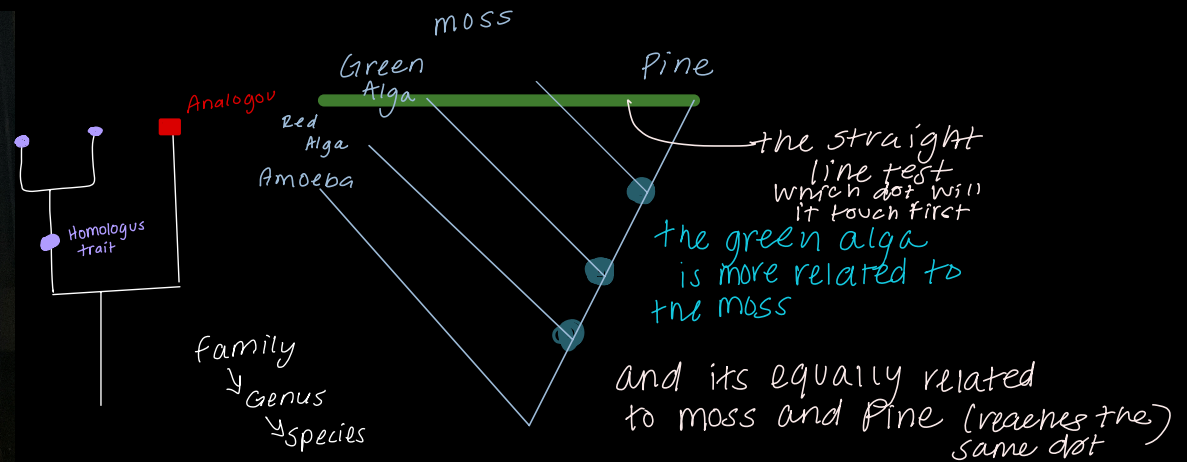 moss
Green
Alga
Pine
Analogou
Red
Alga
Amoeba
Homologus
trait
the straight
line test
which dot will
it touch first
the green alga
is more related to
the moss
family
Genus
species
and its equally related
to moss and Pine (reaches the)
same dot